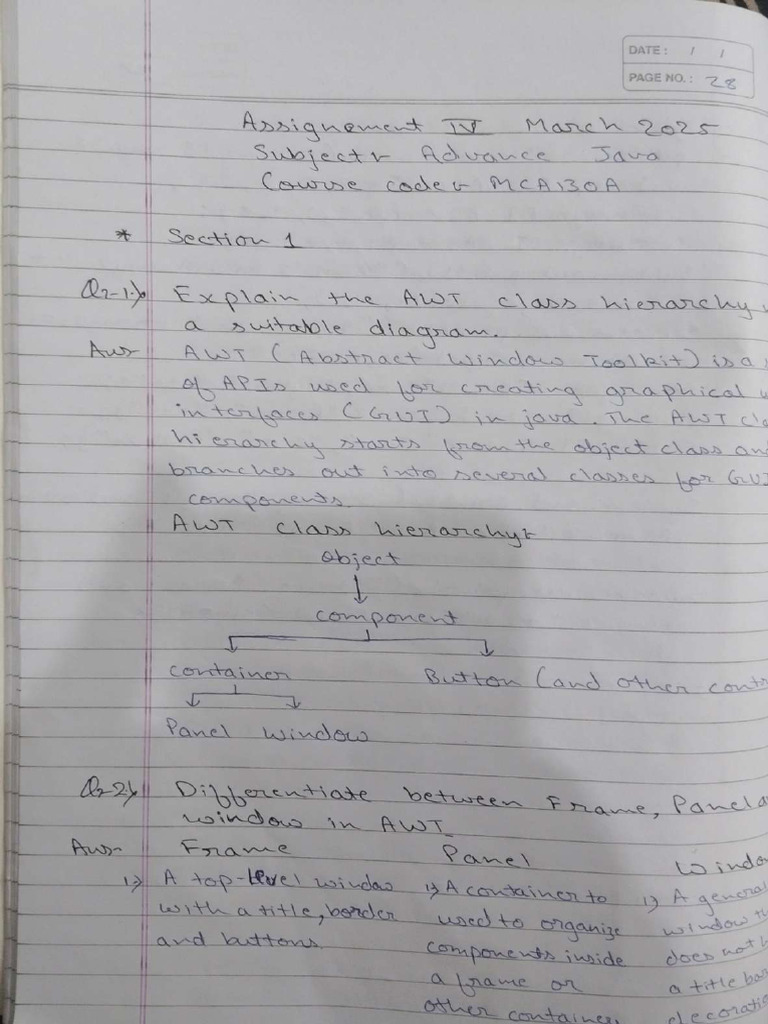 DATE: / /
PAGE NO.: 28
Assignement IV March 2025
Subject:- Advance Java
Course code:- MCA130A
* Section 1
Q-1) Explain the AWT class hierarchy
a suitable diagram.
Ans- AWT (Abstract Window Toolkit) is a
of APIs used for creating graphical
interfaces (GUI) in java. The AWT cla
hierarchy starts from the object class an
branches out into several classes for GUI
components.
AWT class hierarchy:-
object
component
container Button (and other contr
Panel window
Q-2) Differentiate between Frame, Panel a
window in AWT
Ans- Frame Panel Windo
1) A top-level window 1) A container to 1) A general
with a title, border used to organize window
and buttons. components inside does not h
a frame or a title bar
other container. decoratio